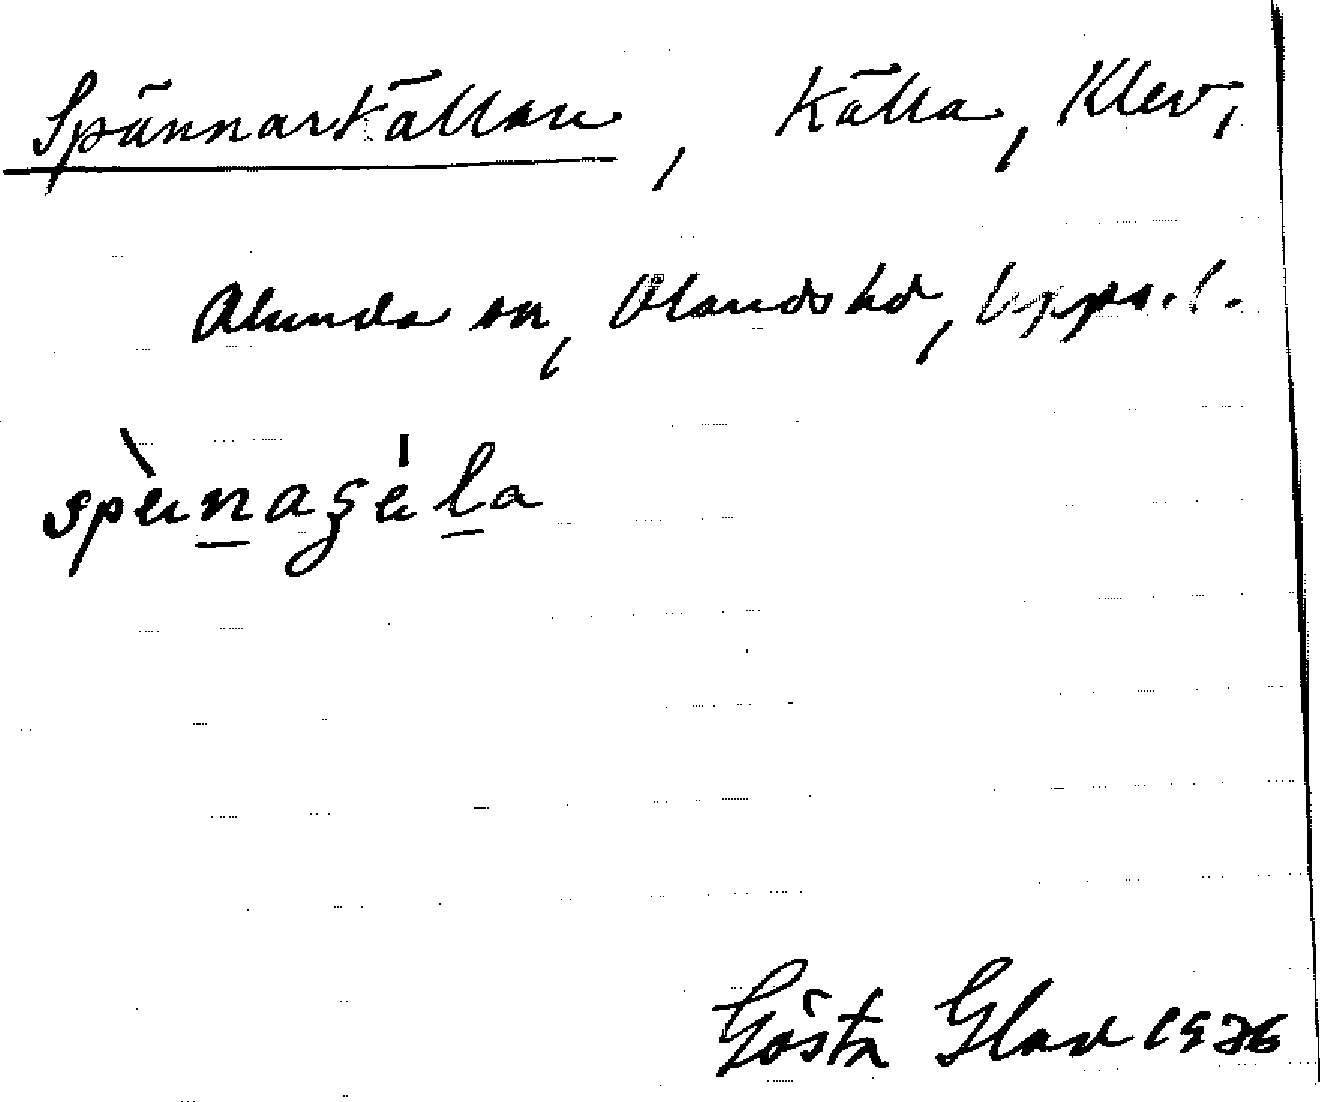 Spännarkällan, Källa, Klev,
Alunda sn, Olands hd, Upps. l.
Gösta Glad 1936